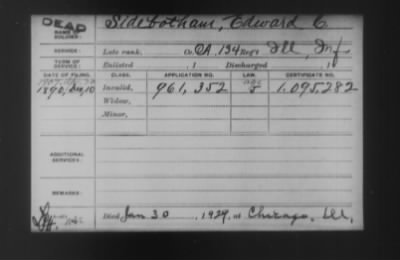 DEAD
NAME OF SOLDIER: Sidebotham, Edward C.
SERVICE: Late rank, Co. A, 134 Reg't Ill. Inf.
TERM OF SERVICE: Enlisted , 1 Discharged , 1
DATE OF FILING. CLASS. APPLICATION NO. LAW. CERTIFICATE NO.
1890, Dec, 10 Invalid, 961,352 1,095,282
Widow,
Minor,
ADDITIONAL SERVICES:
REMARKS:
Died Jan 30, 1929, at Chicago, Ill.